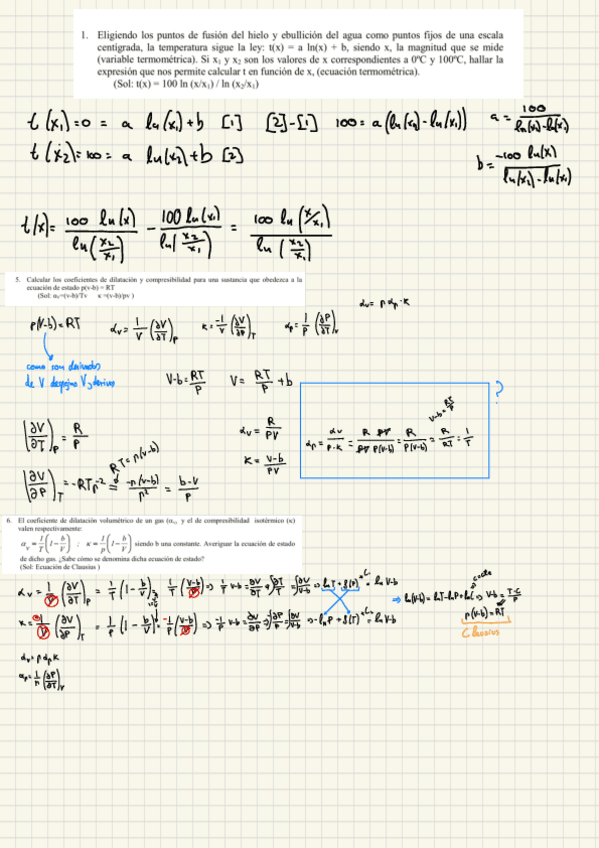 1. Eligiendo los puntos de fusión del hielo y ebullición del agua como puntos fijos de una escala
centígrada, la temperatura sigue la ley: t(x) = a ln(x) + b, siendo x, la magnitud que se mide
(variable termométrica). Si x₁ y x₂ son los valores de x correspondientes a 0ºC y 100ºC, hallar la
expresión que nos permite calcular t en función de x, (ecuación termométrica).
(Sol: t(x) = 100 ln (x/x₁) / ln (x₂/x₁)
t(x₁)=0 = a ln(x₁)+b [1] [2]-[1] 100 = a(ln(x₂)-ln(x₁)) a = 100/(ln(x₂)-ln(x₁))
t(x₂)=100 = a ln(x₂)+b [2] b = -100 ln(x₁)/(ln(x₂)-ln(x₁))
t(x) = 100 ln(x)/ln(x₂/x₁) - 100 ln(x₁)/ln(x₂/x₁) = 100 ln(x/x₁)/ln(x₂/x₁)
5. Calcular los coeficientes de dilatación y compresibilidad para una sustancia que obedezca a la
ecuación de estado p(v-b) = RT
(Sol: αᵥ=(v-b)/Tv κ =(v-b)/pv )
αv = p αp · κ
p(V-b) = RT αv = 1/V (∂V/∂T)p κ = -1/V (∂V/∂P)T αp = 1/P (∂P/∂T)v
como son derivadas
de V despejas V y derivas
V-b = RT/P V = RT/P + b
V-b = RT/P
?
(∂V/∂T)p = R/P αv = R/PV αp = αv/P·κ = R PV/PV P(V-b) = R/P(V-b) = R/RT = 1/T
RT = p(v-b) κ = V-b/PV
(∂V/∂P)T = -RTp⁻² = -p(v-b)/p² = b-v/p
6. El coeficiente de dilatación volumétrico de un gas (αᵥ) y el de compresibilidad isotérmico (κ)
valen respectivamente:
αᵥ = 1/T (1 - b/V) ; κ = 1/p (1 - b/V) siendo b una constante. Averiguar la ecuación de estado
de dicho gas. ¿Sabe cómo se denomina dicha ecuación de estado?
(Sol: Ecuación de Clausius )
αv = 1/V (∂V/∂T)p = 1/T (1 - b/V) = 1/T (V-b/V) ⇒ 1/T V-b = ∂V/∂T ⇒ ∫∂T/T = ∫∂V/V-b ⇒ lnT + f(P) = ln V-b
⇒ ln(V-b) = lnT - lnP + lnC ⇒ V-b = T·C/P
κ = -1/V (∂V/∂P)T = 1/P (1 - b/V) = -1/P (V-b/V) ⇒ -1/P V-b = ∂V/∂P ⇒ -∫∂P/P = ∫∂V/V-b ⇒ -lnP + f(T) = ln V-b
p(V-b) = RT
Clausius
αv = p αp κ
αp = 1/P (∂P/∂T)v